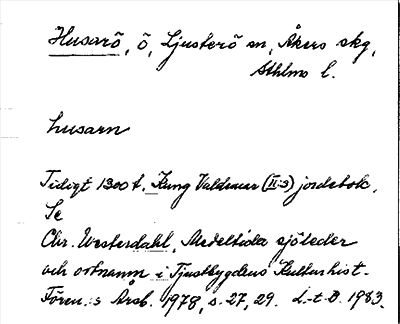 Husarö, ö, Ljusterö sn, Åkers skg,
Sthlms l.
husarn
Tidigt 1300 t. Kung Valdemars (II:s) jordebok.
Se
Chr. Westerdahl, Medeltida sjöleder
och ortnamn i Tjustbygdens Kulturhist.
Fören.:s Årsb. 1978, s. 27, 29. L-t-D. 1983.